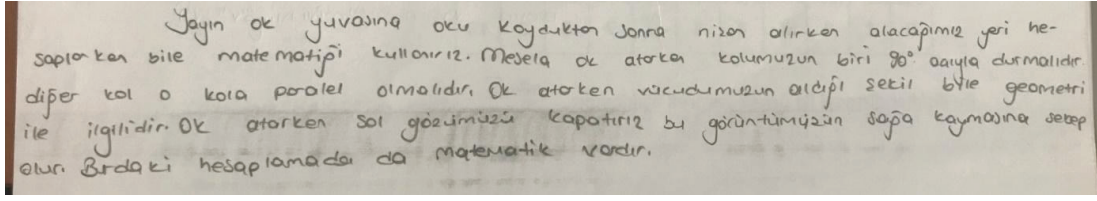 Yayın ok yuvasına oku koyduktan sonra nizan alırken alacağımız yeri he-
saplarken bile matematiği kullanırız. Mesela ok atarken kolumuzun biri 90° açıyla durmalıdır.
diğer kol o kola paralel olmalıdır. Ok atarken vücudumuzun aldığı şekil bile geometri
ile ilgilidir. Ok atarken sol gözümüzü kapatırız bu görüntümüzün sağa kaymasına sebep
olur. Burdaki hesaplamada da matematik vardır.